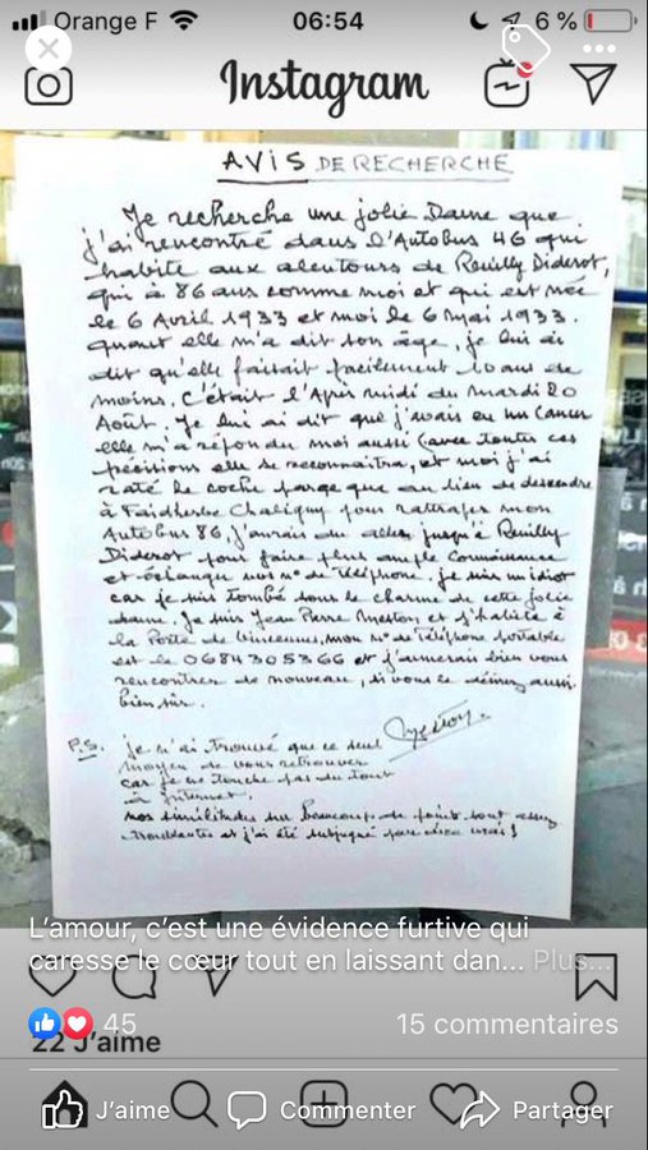 Orange F 06:54 6 %
Instagram
AVIS DE RECHERCHE
Je recherche une jolie Dame que
j'ai rencontré dans l'Autobus 46 qui
habite aux alentours de Reuilly Diderot,
qui à 86 ans comme moi et qui est née
le 6 Avril 1933 et moi le 6 mai 1933.
quant elle m'a dit son âge, je lui ai
dit qu'elle faisait facilement 10 ans de
moins. C'était l'Après midi du mardi 20
Août. Je lui ai dit que j'avais eu un Cancer
elle m'a répondu moi aussi (avec toutes ces
précisions elle se reconnaitra, et moi j'ai
raté le coche parce que au lieu de descendre
à Faidherbe Chaligny pour rattraper mon
Autobus 86, j'aurais du aller jusqu'à Reuilly
Diderot pour faire plus ample Connaissance
et échanger nos n° de téléphone. je suis un idiot
car je suis tombé sous le charme de cette jolie
dame. Je suis Jean Pierre et j'habite à
la Porte de Vincennes, mon N° de Téléphone portable
est le 0684305366 et j'aimerais bien vous
rencontrer de nouveau, si vous le désirez aussi
bien sûr.
P.S. je n'ai trouvé que ce seul
moyen de vous retrouver
car je ne touche pas du tout
à internet.
nos similitudes sur Beaucoup de points sont assez
troublantes et j'ai été subjugué par
L'amour, c'est une évidence furtive qui
caresse le cœur tout en laissant dan... Plus...
45 15 commentaires
22 J'aime
J'aime Commenter Partager